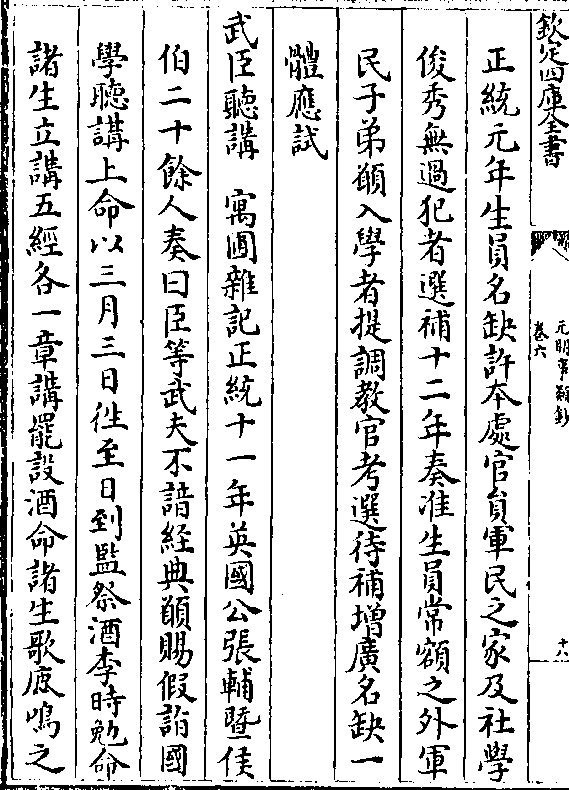 欽定四庫全書
元明事類鈔
卷六
十八
正統元年生員名缺許本處官員軍民之家及社學
俊秀無過犯者選補十二年奏准生員常額之外軍
民子弟願入學者提調教官考選待補增廣名缺一
體應試
武臣聽講　寓圃雜記正統十一年英國公張輔暨侯
伯二十餘人奏曰臣等武夫不諳經典願賜假詣國
學聽講上命以三月三日徃至日到監祭酒李時勉命
諸生立講五經各一章講罷設酒命諸生歌鹿鳴之